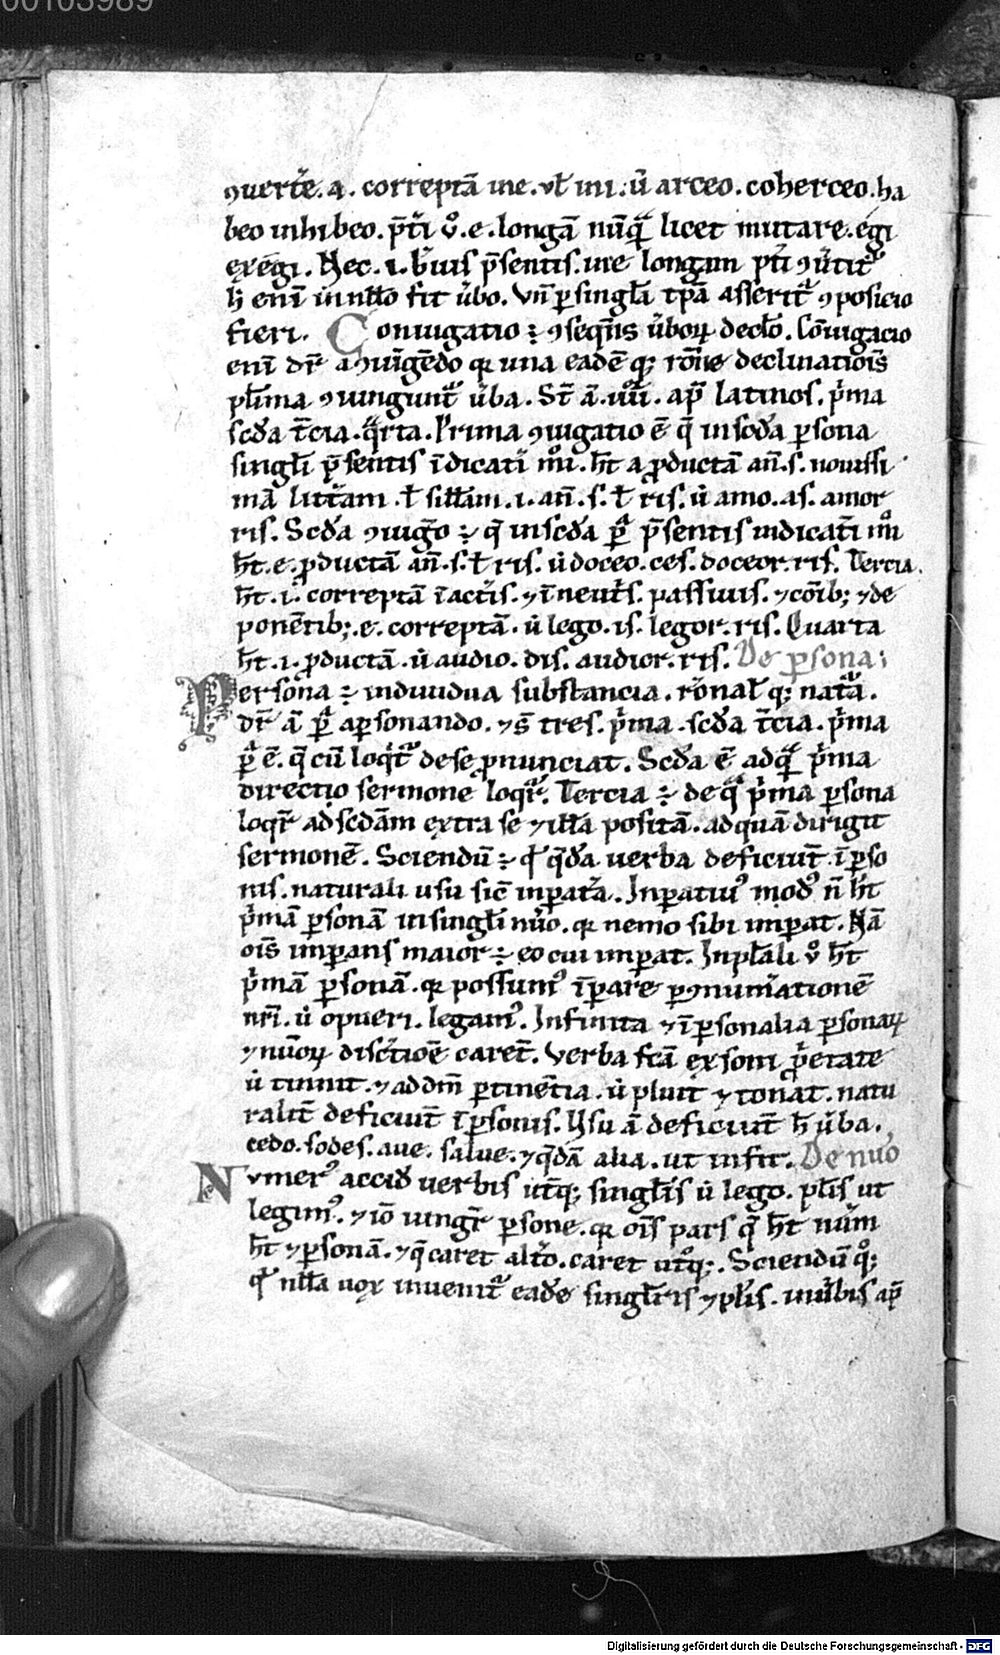 00103989
ꝯuerte᷒. a. correptā in e. ꝉ in i. ů arceo. coherceo. ha
beo inhibeo. p̄tͥi ů. e. longā nūqͣ licet mutare. egi
exēgi. Nec. i. b͛uis p̄sentis. in e longum ptͥi ꝯu͛titͬ
h̄ enī in nll̄o fit u͛bo. Vn̄ ꝑ singl̄a tꝑa asseritͬ ꝯposicio
fieri. Coniugatio ÷ ꝯseqn̄s u͛boꝝ declō. Cōiugacio
enī dr̄ a ꝯiūgēdo qꝛ una eadē qꝫ rōne declinatiōis
pl̄ima ꝯiungunt᷑ u͛ba. St̄ ā .iiii. ap̄ latinos. pͥma
scd̄a t͛cia. qͣrta. Prima ꝯiugatio ē q̄ in scd̄a ꝑsona
singl̄i p̄sentis īdicatiͥ mͦi. ht̄ a ꝓductā an̄ .s. nouissi
mā litt͛am. ꝉ sill̄am. i. an̄ .s. ꝉ ris. ů amo. as. amor
ris. Scd̄a ꝯiugͦo ÷ q̄ in scd̄a ꝑͣ p̄sentis indicatiͥ mͦi
ht̄. e. ꝓductā an̄ .s. ꝉ ris. ů doceo. ces. doceor. ris. Tercia.
ht̄. i. correptā ī actͥis. ⁊ ī neut͛s. passiuis. ⁊ cōibꝫ ⁊ de
ponētibꝫ. e. correptā. ů lego. is. legor. ris. Quarta
ht̄. i. ꝓductā. ů audio. dis. audior. ris. De ꝑsona;
Persona ÷ indiuidua substancia. rōnal̄ qꝫ natͬa.
dr̄ ā ꝑͣ a ꝑsonando. ⁊ s̄ tres. pͥma. scd̄a t͛cia. pͥma
ꝑͣ ē. q̄ cū loqͥtͬ de se ꝓnunciat. Scd̄a ē ad qͣ pͥma
directo sermone loqͥtͬ. Tercia ÷ de qͣ pͥma ꝑsona
loqͬ ad scdām extra se ⁊ illā positā. ad quā dirigit
sermonē. Sciendū ÷ qd̄ q̄da uerba deficiūt ī ꝑso
nis. naturali usu sic̄ inꝑat͛a. Inꝑatiuꝰ modꝰ n̄ ht̄
pͥmā ꝑsonā in singl̄i nūo. qꝛ nemo sibi imꝑat. Nā
ois̄ imꝑans maior ÷ eo cui imꝑat. In pl̄ali ů ht̄
pͥmā ꝑsonā. qꝛ possumꝰ īꝑare ꝑ ꝯnum͛ationē
nr̄i. ů o pueri. legamꝰ. Infinita ⁊ īꝑsonalia ꝑsonaꝝ
⁊ nūoꝝ disc͛tiōe caret̄. Verba fc̄a ex soni ꝓͥetate
ů tinnit. ⁊ ad dm̄ ꝑtinētia. ů pluit ⁊ tonat. natu
ralit͛ deficiūt ī ꝑsonis. Usu ā deficiūt h̄ u͛ba.
cedo. sodes. aue. salue. ⁊ q̄dā alia. ut infit. De nūo
Numerꝰ accid̄ uerbis ut͛qꝫ singl̄is ů lego. pl̄is ut
legimꝰ. ⁊ iō iungͬ ꝑsone. qꝛ ois̄ pars q̄ ht̄ nūm
ht̄ ⁊ ꝑsonā. ⁊ q̄ caret alt͛o. caret ut͛oqꝫ. Sciendū qꝫ
qd̄ nll̄a uox inuenitͬ eadē singl̄is ⁊ pl̄is. in u͛bis ap̄
Digitalisierung gefördert durch die Deutsche Forschungsgemeinschaft - DFG